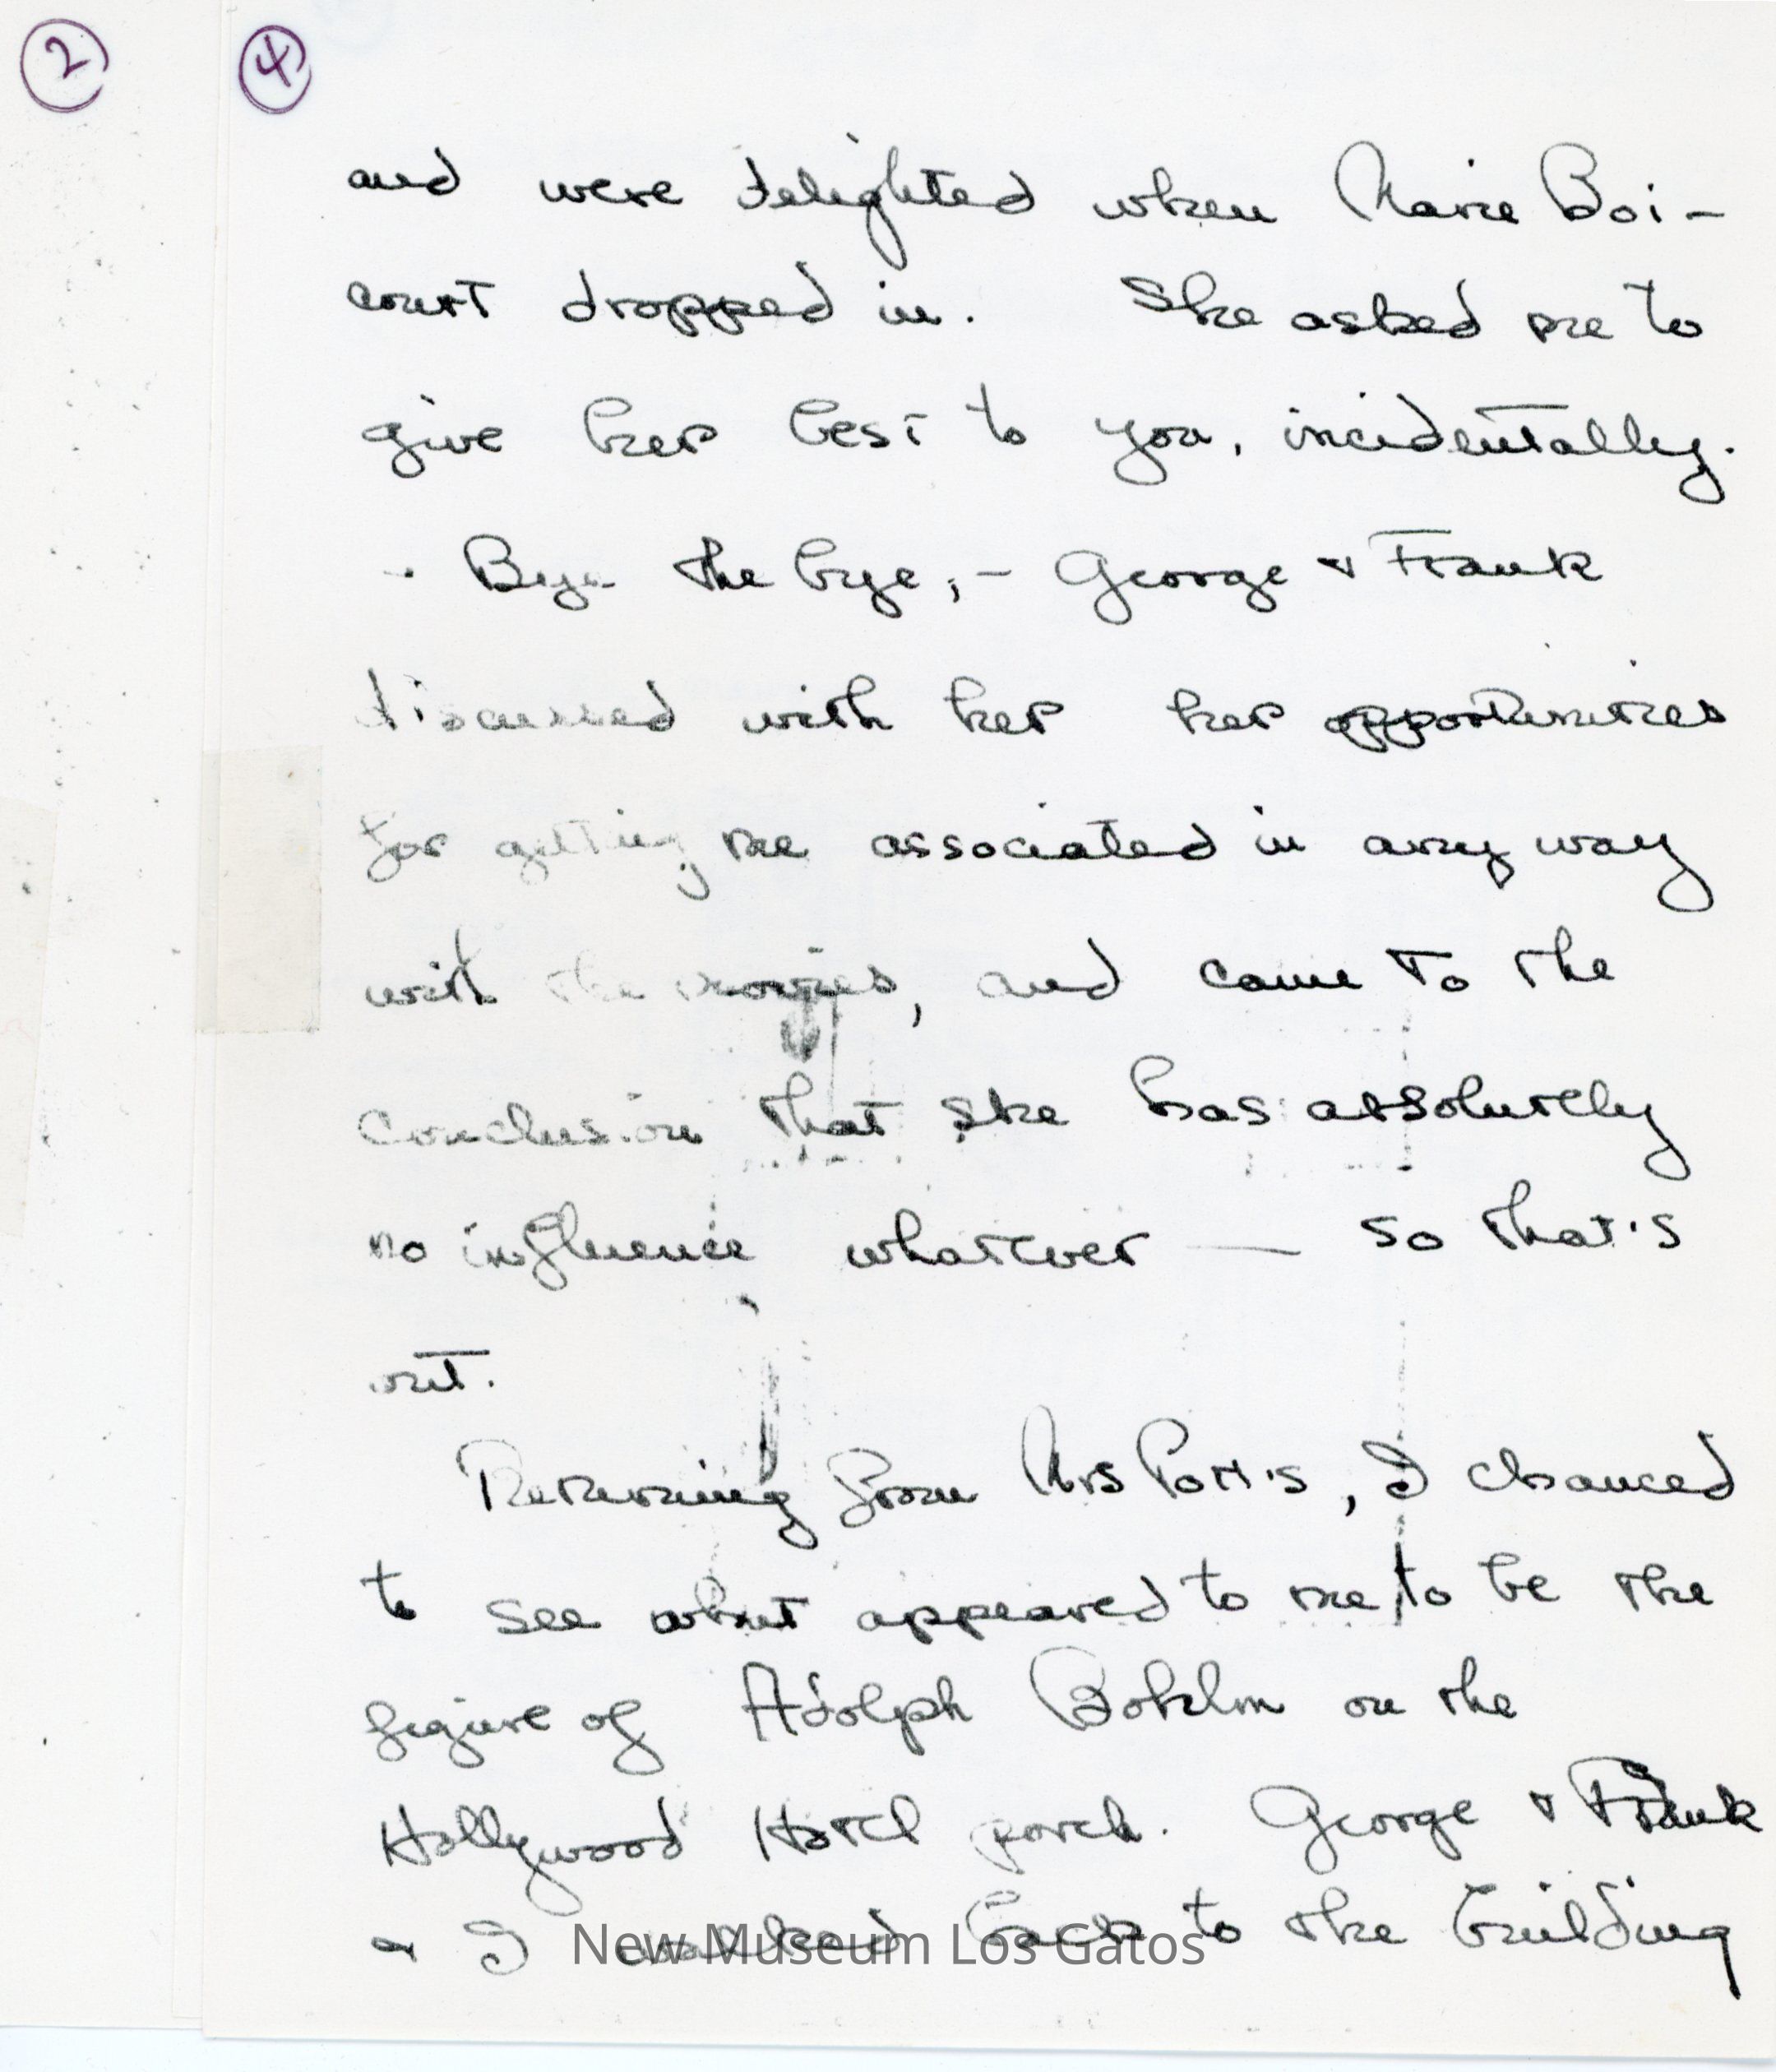 2
4
and were delighted when Marie Boi-
court dropped in. She asked me to
give her best to you, incidentally.
- Bye the bye, - George & Frank
discussed with her her opportunities
for getting me associated in any way
with the movies, and came to the
conclusion that she has absolutely
no influence whatever — so that's
out.
Returning from Mrs Pott's, I chanced
to see what appeared to me to be the
figure of Adolph Bohlm on the
Hollywood Hotel porch. George & Frank
& I walked back to the building
New Museum Los Gatos